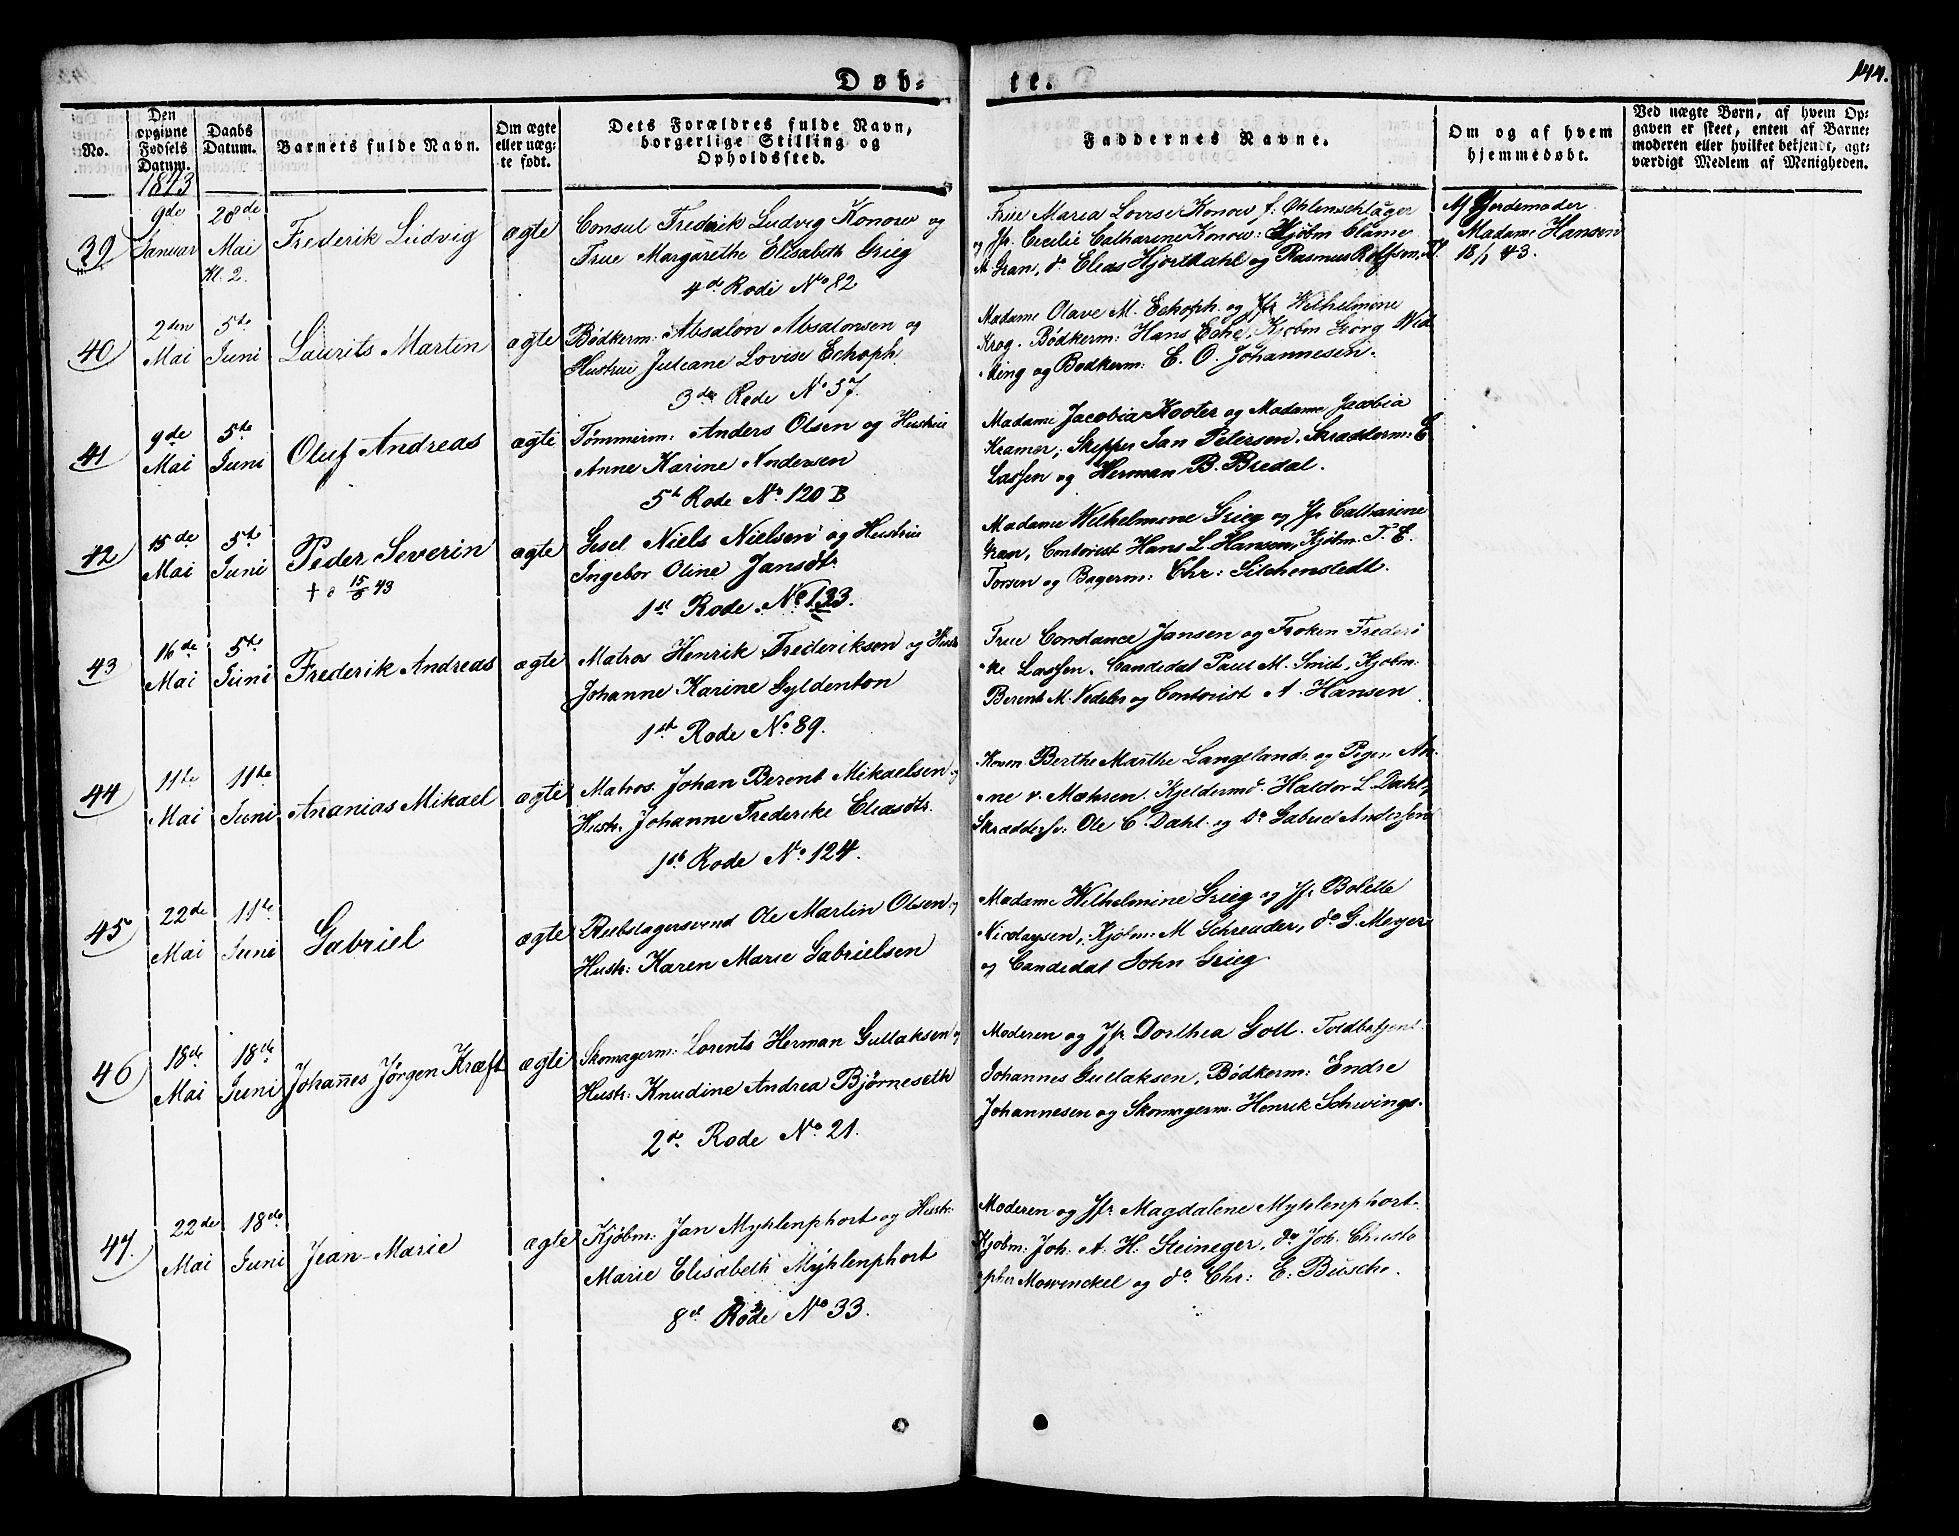 Døb-
te.
144.
No.
Den opgivne Fødsels Datum.
Daabs Datum.
Barnets fulde Navn.
Om ægte eller uægte født.
Dets Forældres fulde Navn, borgerlige Stilling og Opholdssted.
Faddernes Navne.
Om og af hvem hjemmedøbt.
Ved uægte Børn, af hvem Opgaven er skeet, enten af Barnemoderen eller hvilket bekjendt, agtværdigt Medlem af Menigheden.
1843
39
9de Januar
28de Mai Kl. 2.
Frederik Ludvig
ægte
Consul Fredrik Ludvig Konow og
Frue Margarethe Elisabeth Grieg
4de Rode No 82
Frue Maria Lovise Konow f. Ohlenschläger
og Jfr. Cecilie Catharine Konow: Kjøbm
Gran, do Elias Hjortdahl og Rasmus Rolfsen
Af Jordemoder
Madame Hansen
18/1 43.
40
2den Mai
5te Juni
Laurits Martin
ægte
Bødkerm: Absalon Absalonsen og
Hustrue Juliane Lovise Echoph.
3die Rode No 57.
Madame Olave M. Echoph. og Jfr Wilhelmine
Krog. Bødkerm: Hans Eche, Kjøbm Georg Wed
ding og Bødkerm: E. O. Johannesen.
41
9de Mai
5te Juni
Oluf Andreas
ægte
Tømmerm: Anders Olsen og Hustrue
Anne Karine Andersen
5te Rode No 120 B
Madame Jacobia Kooter og Madame Jacobia
Kramer, Skipper Jan Petersen. Skrædderm: E
Lassen og Herman B. Bredal.
42
15de Mai
5te Juni
Peder Severin
† d 15/6 43
ægte
Gesel Niels Nielsen og Hustrue
Ingebor Oline Jansdtr
1st Rode No 133.
Madame Wilhelmine Grieg og Jfr Catharine
Gran, Contorist Hans L. Hansen, Kjøbm. T. E.
Torsen og Bagerm: Chr: Sichenstedt.
43
16de Mai
5te Juni
Frederik Andreas
ægte
Matros Henrik Frederiksen og Hustr
Johanne Karine Gyldenton
1ste Rode No 89.
Frue Constance Jansen og Frøken Frederi
ke Lassen. Candidat Paul M. Smit, Kjøbm:
Berent M. Vedeler og Contorist A. Hansen
44
11te Mai
11te Juni
Ananias Mikael
ægte
Matros Johan Berent Mikaelsen og
Hustr. Johanne Frederike Eliasdtr.
1ste Rode No 124.
Konen Berthe Marthe Langeland og Pigen An
ne v. Mæhren. Kjeldermd Haldor L. Dahl,
Skræddersv: Ole C. Dahl. og do Gabriel Andersen
45
22de Mai
11te Juni
Gabriel
ægte
Reebslagersvend Ole Martin Olsen og
Hustr: Karen Marie Gabrielsen
Madame Wilhelmine Grieg og Jfr. Bolette
Nicolaysen, Kjøbm: M Schreuder, do G. Meyer
og Candidat John Grieg.
46
18de Mai
18de Juni
Johannes Jørgen Kræft
ægte
Skomagerm: Lorents Herman Gullaksen og
Hustr: Knudine Andrea Bjørneseth
2de Rode No 21.
Moderen og Jfr Dorthea Goll. Toldbetjent
Johannes Gullaksen, Bødkerm: Endre
Johannesen og Skomagerm. Henrik Schwings.
47.
22de Mai
18de Juni
Jean-Marie
ægte
Kjøbm: Jan Myhlenphort og Hustr:
Marie Elisabeth Myhlenphort
8de Rode No 33.
Moderen og Jfr Magdalene Myhlenphort.
Kjøbm: Joh. A. H. Steineger, do Joh. Christo
pher Mowinckel og do Chr: E. Busche.